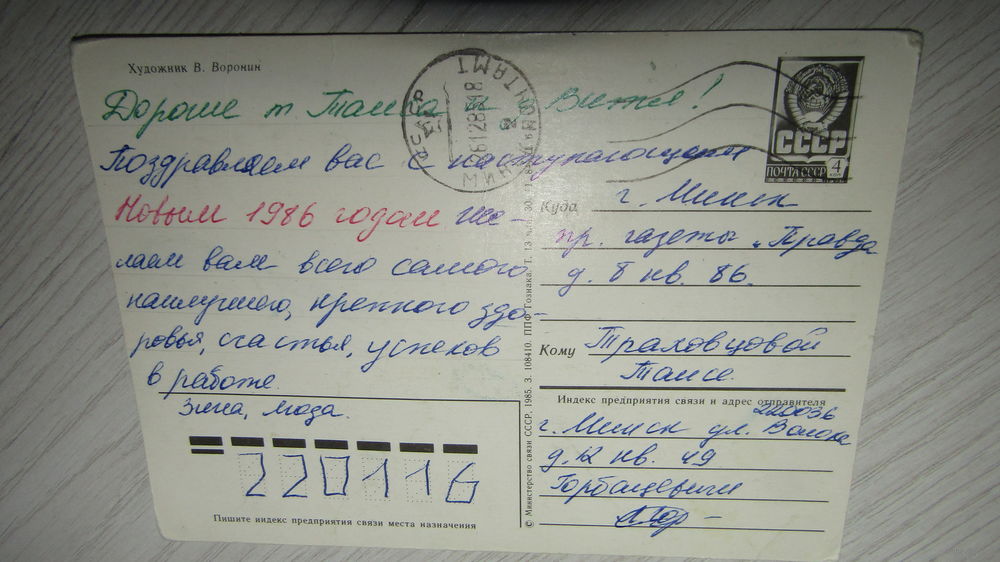 Художник В. Воронин
Дорогие т. Таиса и Витя!
Поздравляем вас с наступающим
Новым 1986 годом же-
лаем вам всего самого
наилучшего, крепкого здо-
ровья, счастья, успехов
в работе.
Зина, Мода.
220116
Пишите индекс предприятия связи места назначения
© Министерство связи СССР, 1985. З. 108410. ППФ Гознака. Т. 13
МИНСК ПОЧТАМТ
СССР
ПОЧТА СССР 4
Куда г. Минск
пр. газеты „Правда
д. 8 кв. 86.
Кому Траховцовой
Таисе.
Индекс предприятия связи и адрес отправителя
220036
г. Минск ул. Волоха
д. 12 кв. 49
Горбацевичи